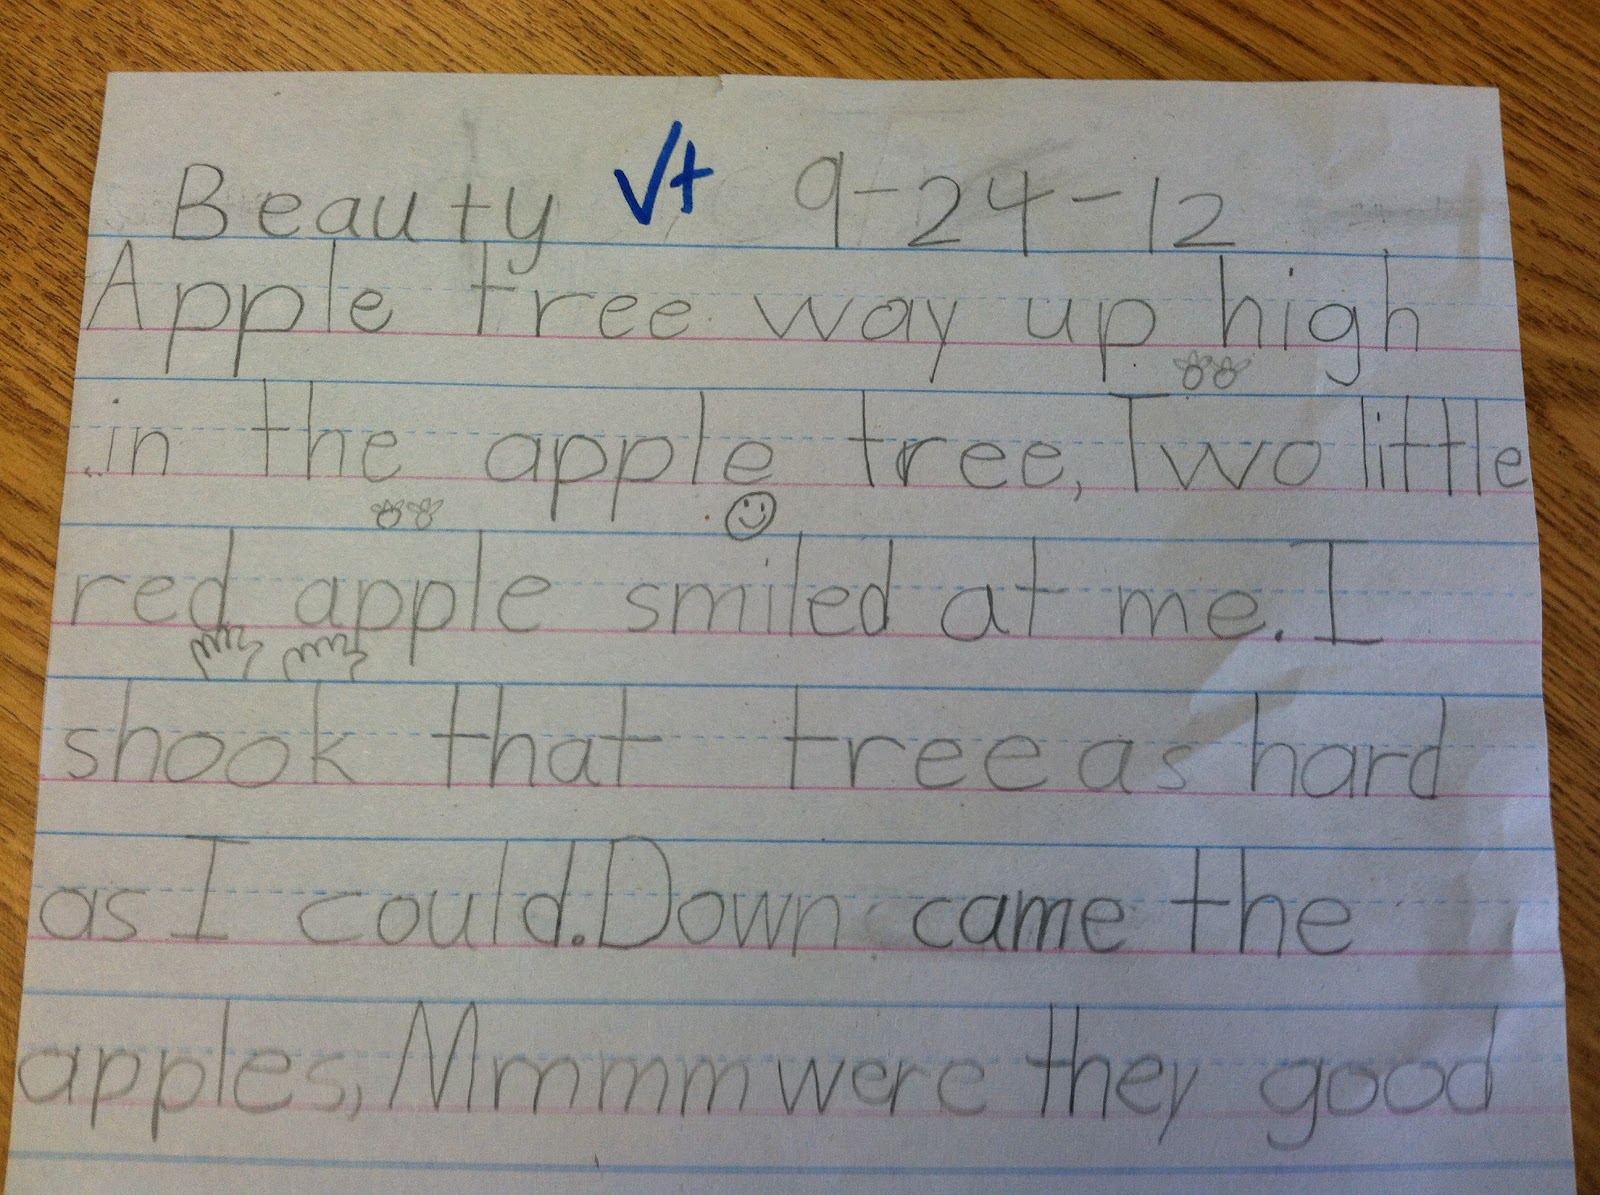 Beauty √+ 9-24-12
Apple tree way up high
in the apple tree, Two little
red apple smiled at me. I
shook that tree as hard
as I could. Down came the
apples, Mmmmm were they good